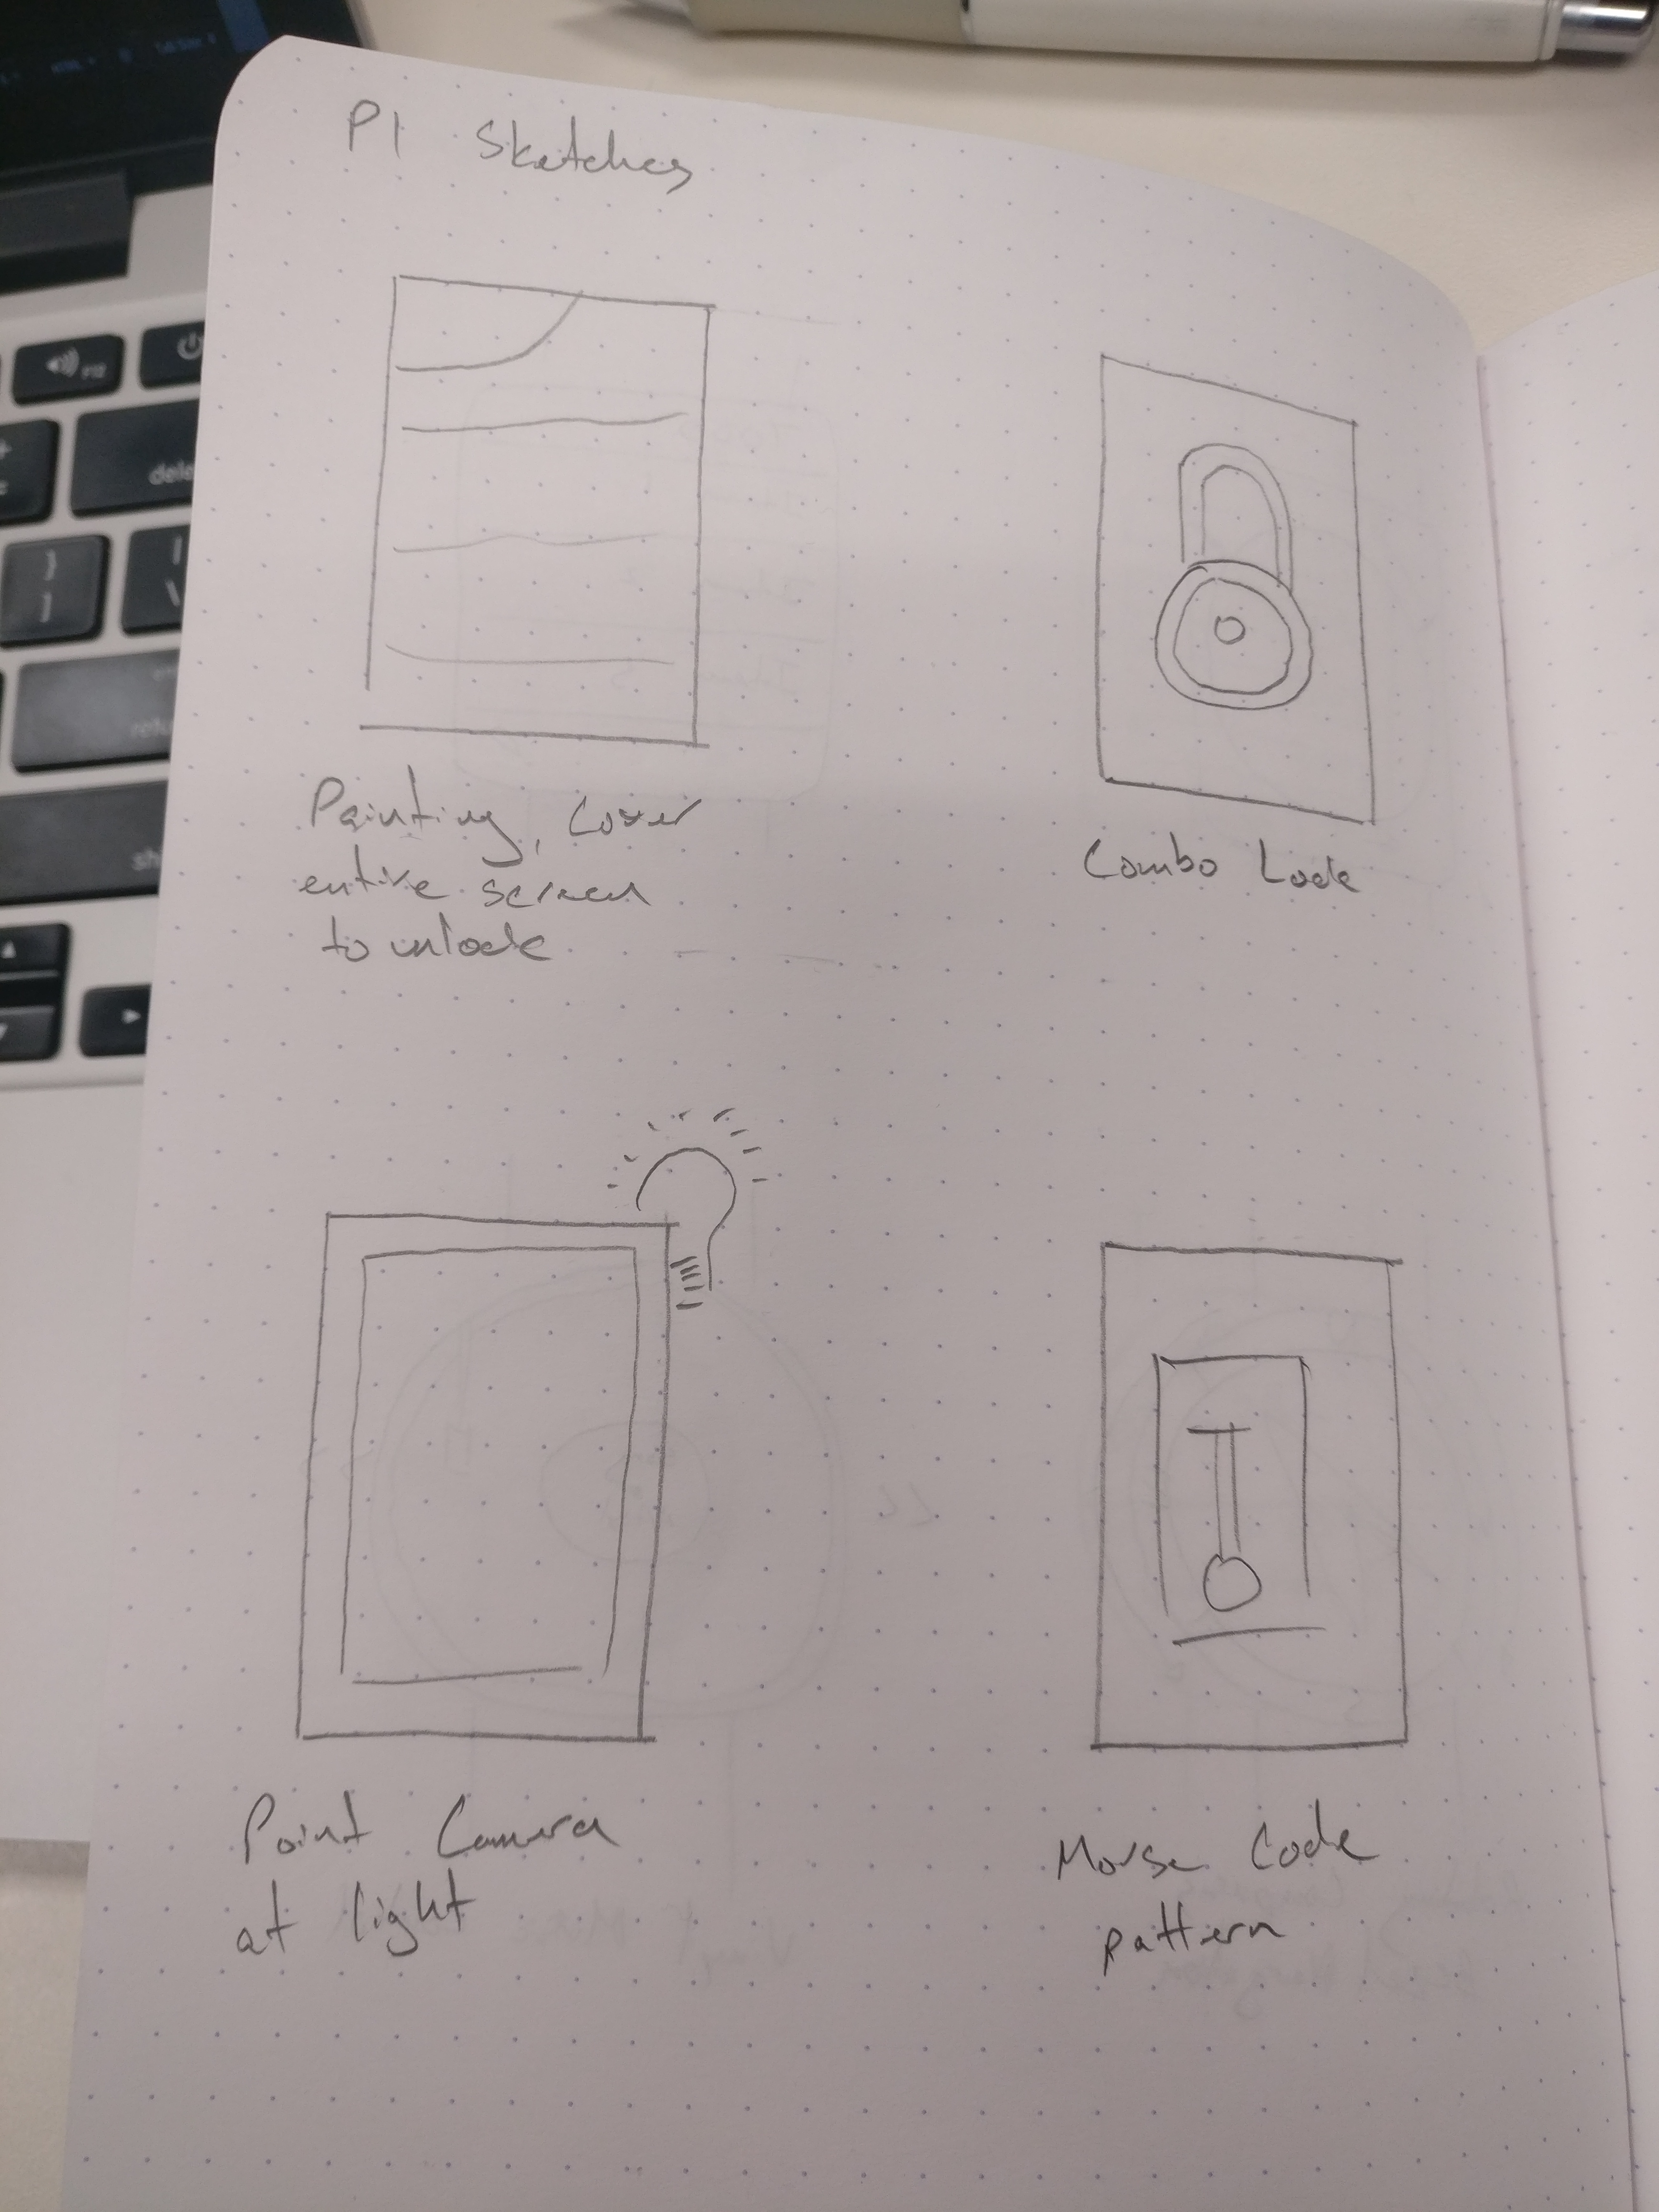 P1 Sketches
Painting, cover
entire screen
to unlock
Combo Lock
Point Camera
at light
Morse Code
pattern
F12
delete